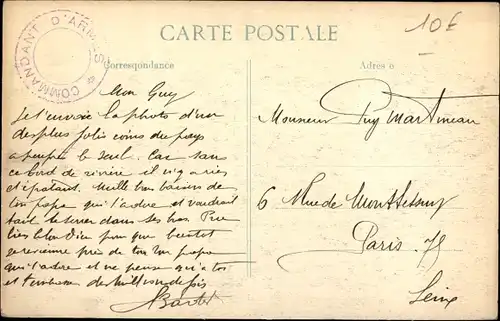 COMMANDANT D'ARMES
CARTE POSTALE
10€
Correspondance
Adresse
Mon Guy
Je t'envoie la photo d'un
des plus jolis coins du pays
a peu près le seul. Car sans
ce bord de rivière il n'y a rien
d'épatant. Mille bons baisers de
ton papa qui t'adore et voudrait
tant te serrer dans ses bras. Prie
bien le bon Dieu pour que bientôt
je revienne près de toi. Ton papa
qui t'adore et ne pense qu'à toi
et t'embrasse des millions de fois
Monsieur Guy Martineau
6 Rue de Montessuy
Paris. 7e
Seine